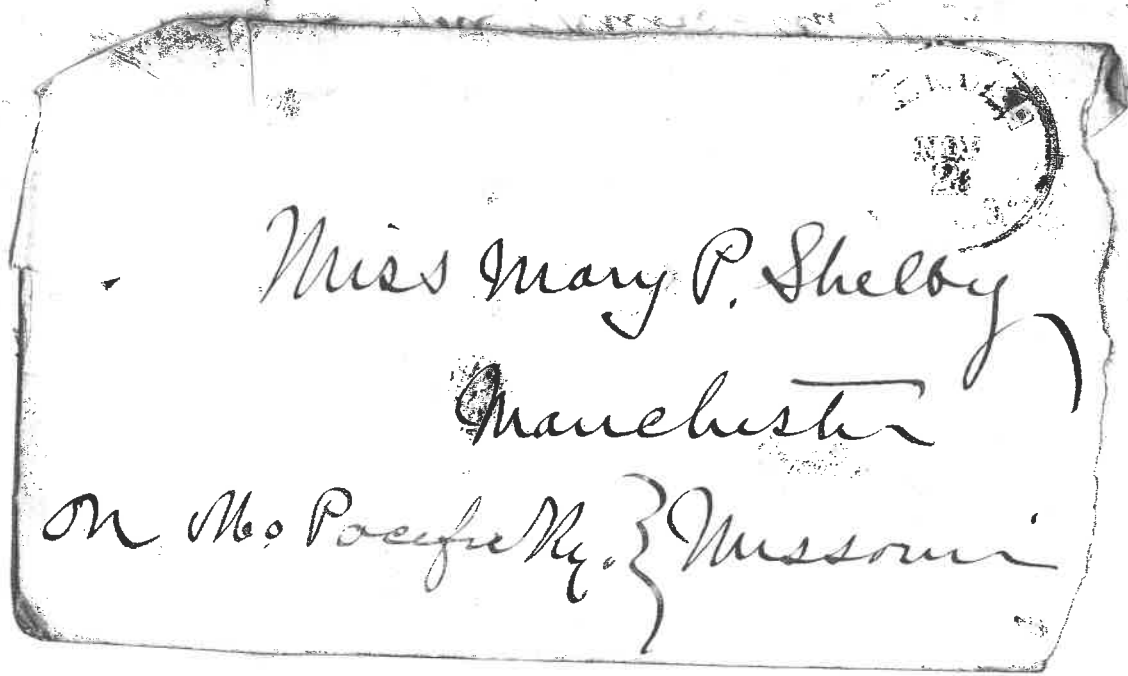 NOV
2
Miss Mary P. Shelby
Manchester
on Mo Pacific Ry. } Missouri